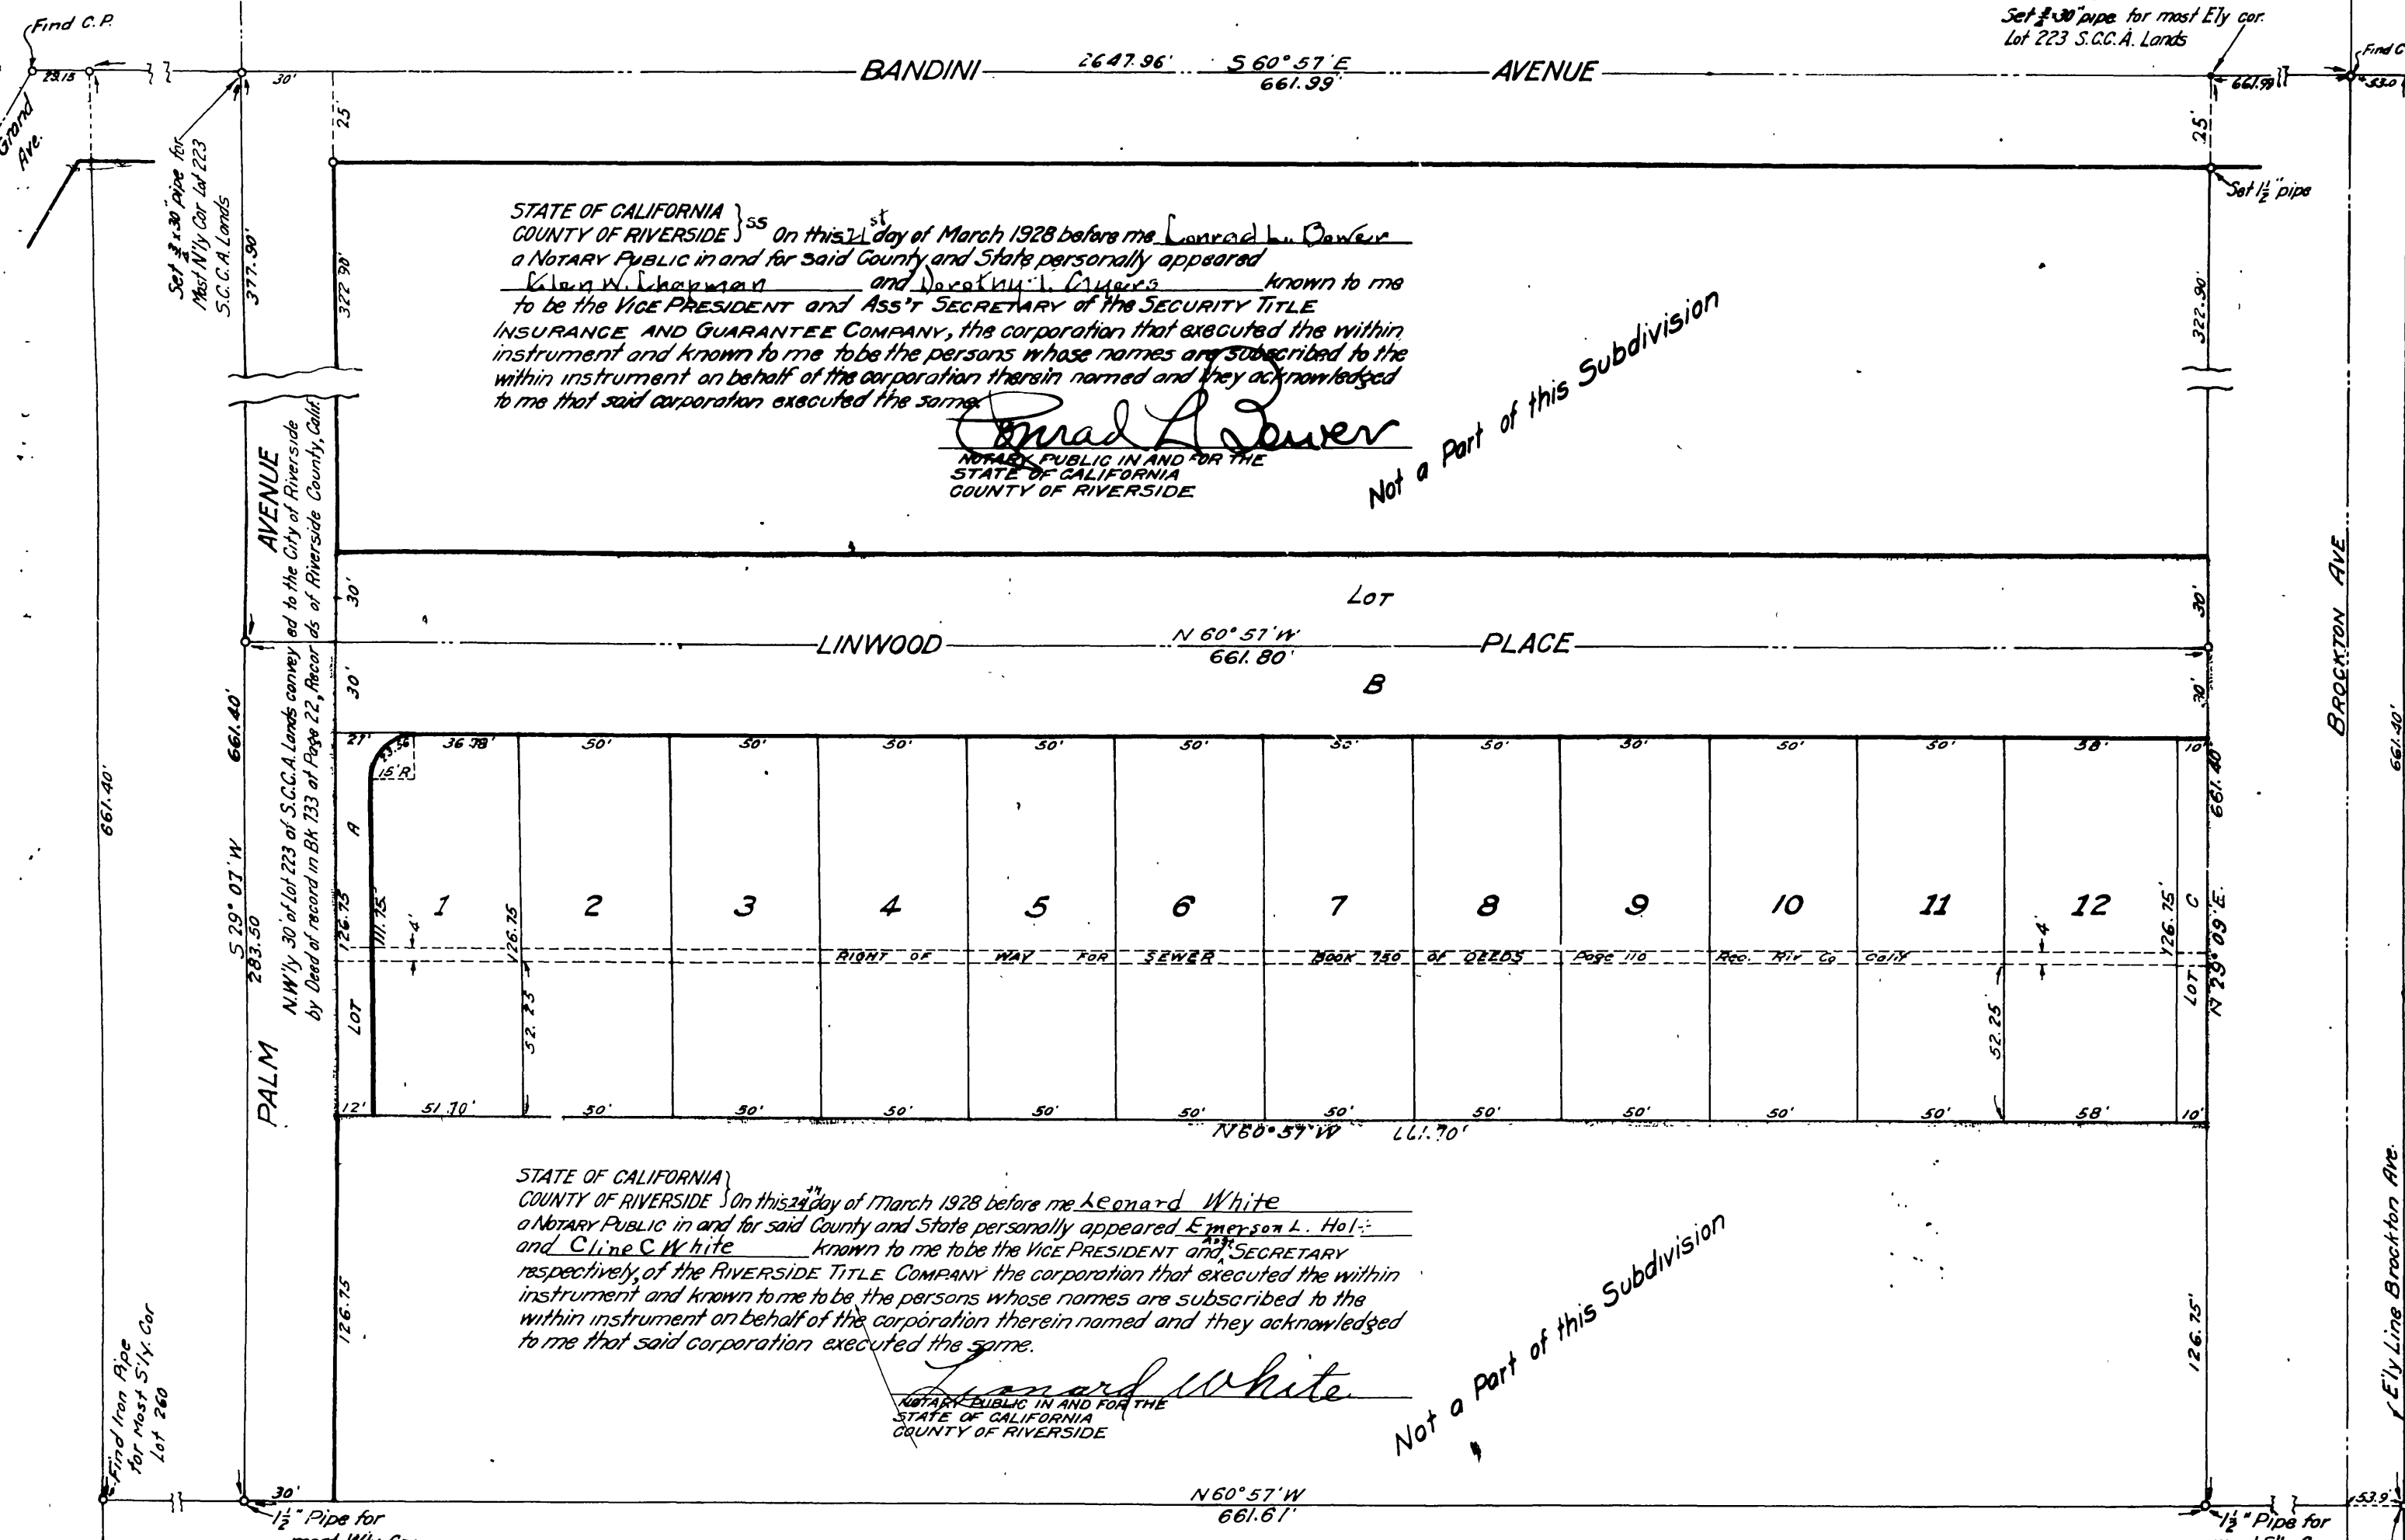 Find C.P.
29.15
Grand
Ave.
30'
BANDINI
2647.96' S 60°57'E
661.99'
AVENUE
Set ¾x30" pipe for most E'ly cor.
Lot 223 S.C.C.A. Lands
661.99
Find C
53.0
25'
25'
Set 1½" pipe
Set ¾x30" pipe for
Most N'ly Cor Lot 223
S.C.C.A. Lands
377.90'
322.90'
322.90'
STATE OF CALIFORNIA } SS
COUNTY OF RIVERSIDE } On this 21st day of March 1928 before me Conrad L. Bower
a NOTARY PUBLIC in and for said County and State personally appeared
Glen W. Chapman and Dorothy known to me
to be the VICE PRESIDENT and ASS'T SECRETARY of the SECURITY TITLE
INSURANCE AND GUARANTEE COMPANY, the corporation that executed the within
instrument and known to me to be the persons whose names are subscribed to the
within instrument on behalf of the corporation therein named and they acknowledged
to me that said corporation executed the same.
Conrad L Bower
NOTARY PUBLIC IN AND FOR THE
STATE OF CALIFORNIA
COUNTY OF RIVERSIDE
Not a Part of this Subdivision
PALM AVENUE
N.W'ly 30' of Lot 223 of S.C.C.A. Lands conveyed to the City of Riverside
by Deed of record in Bk 733 at Page 22, Records of Riverside County, Calif.
S 29° 07' W 661.40'
283.50
661.40'
30'
30'
LOT
LINWOOD
N 60°57'W
661.80'
PLACE
B
30'
30'
BROCKTON AVE
661.40'
27'
23.56
15'R
36.78'
50'
50'
50'
50'
50'
50'
50'
50'
50'
50'
58'
10'
LOT A
126.75
111.75
4'
1
126.75
52.25
2
3
4
5
6
7
8
9
10
11
12
4'
52.25
126.75'
LOT C
N 29° 09' E. 661.40'
RIGHT OF WAY FOR SEWER BOOK 750 OF DEEDS Page 110 Rec. Riv Co Calif
12'
51.70'
50'
50'
50'
50'
50'
50'
50'
50'
50'
50'
58'
10'
N 60°57'W 661.70'
STATE OF CALIFORNIA }
COUNTY OF RIVERSIDE } On this 24th day of March 1928 before me Leonard White
a NOTARY PUBLIC in and for said County and State personally appeared Emerson L. Hol
and Cline C White known to me to be the VICE PRESIDENT and Asst SECRETARY
respectively, of the RIVERSIDE TITLE COMPANY the corporation that executed the within
instrument and known to me to be the persons whose names are subscribed to the
within instrument on behalf of the corporation therein named and they acknowledged
to me that said corporation executed the same.
Leonard White
NOTARY PUBLIC IN AND FOR THE
STATE OF CALIFORNIA
COUNTY OF RIVERSIDE
Not a Part of this Subdivision
126.75
126.75'
E'ly Line Brockton Ave.
Find Iron Pipe
for Most S'ly. Cor
Lot 260
30'
1½" Pipe for
most W'ly Cor
N 60°57'W
661.61'
53.9'
1½" Pipe for